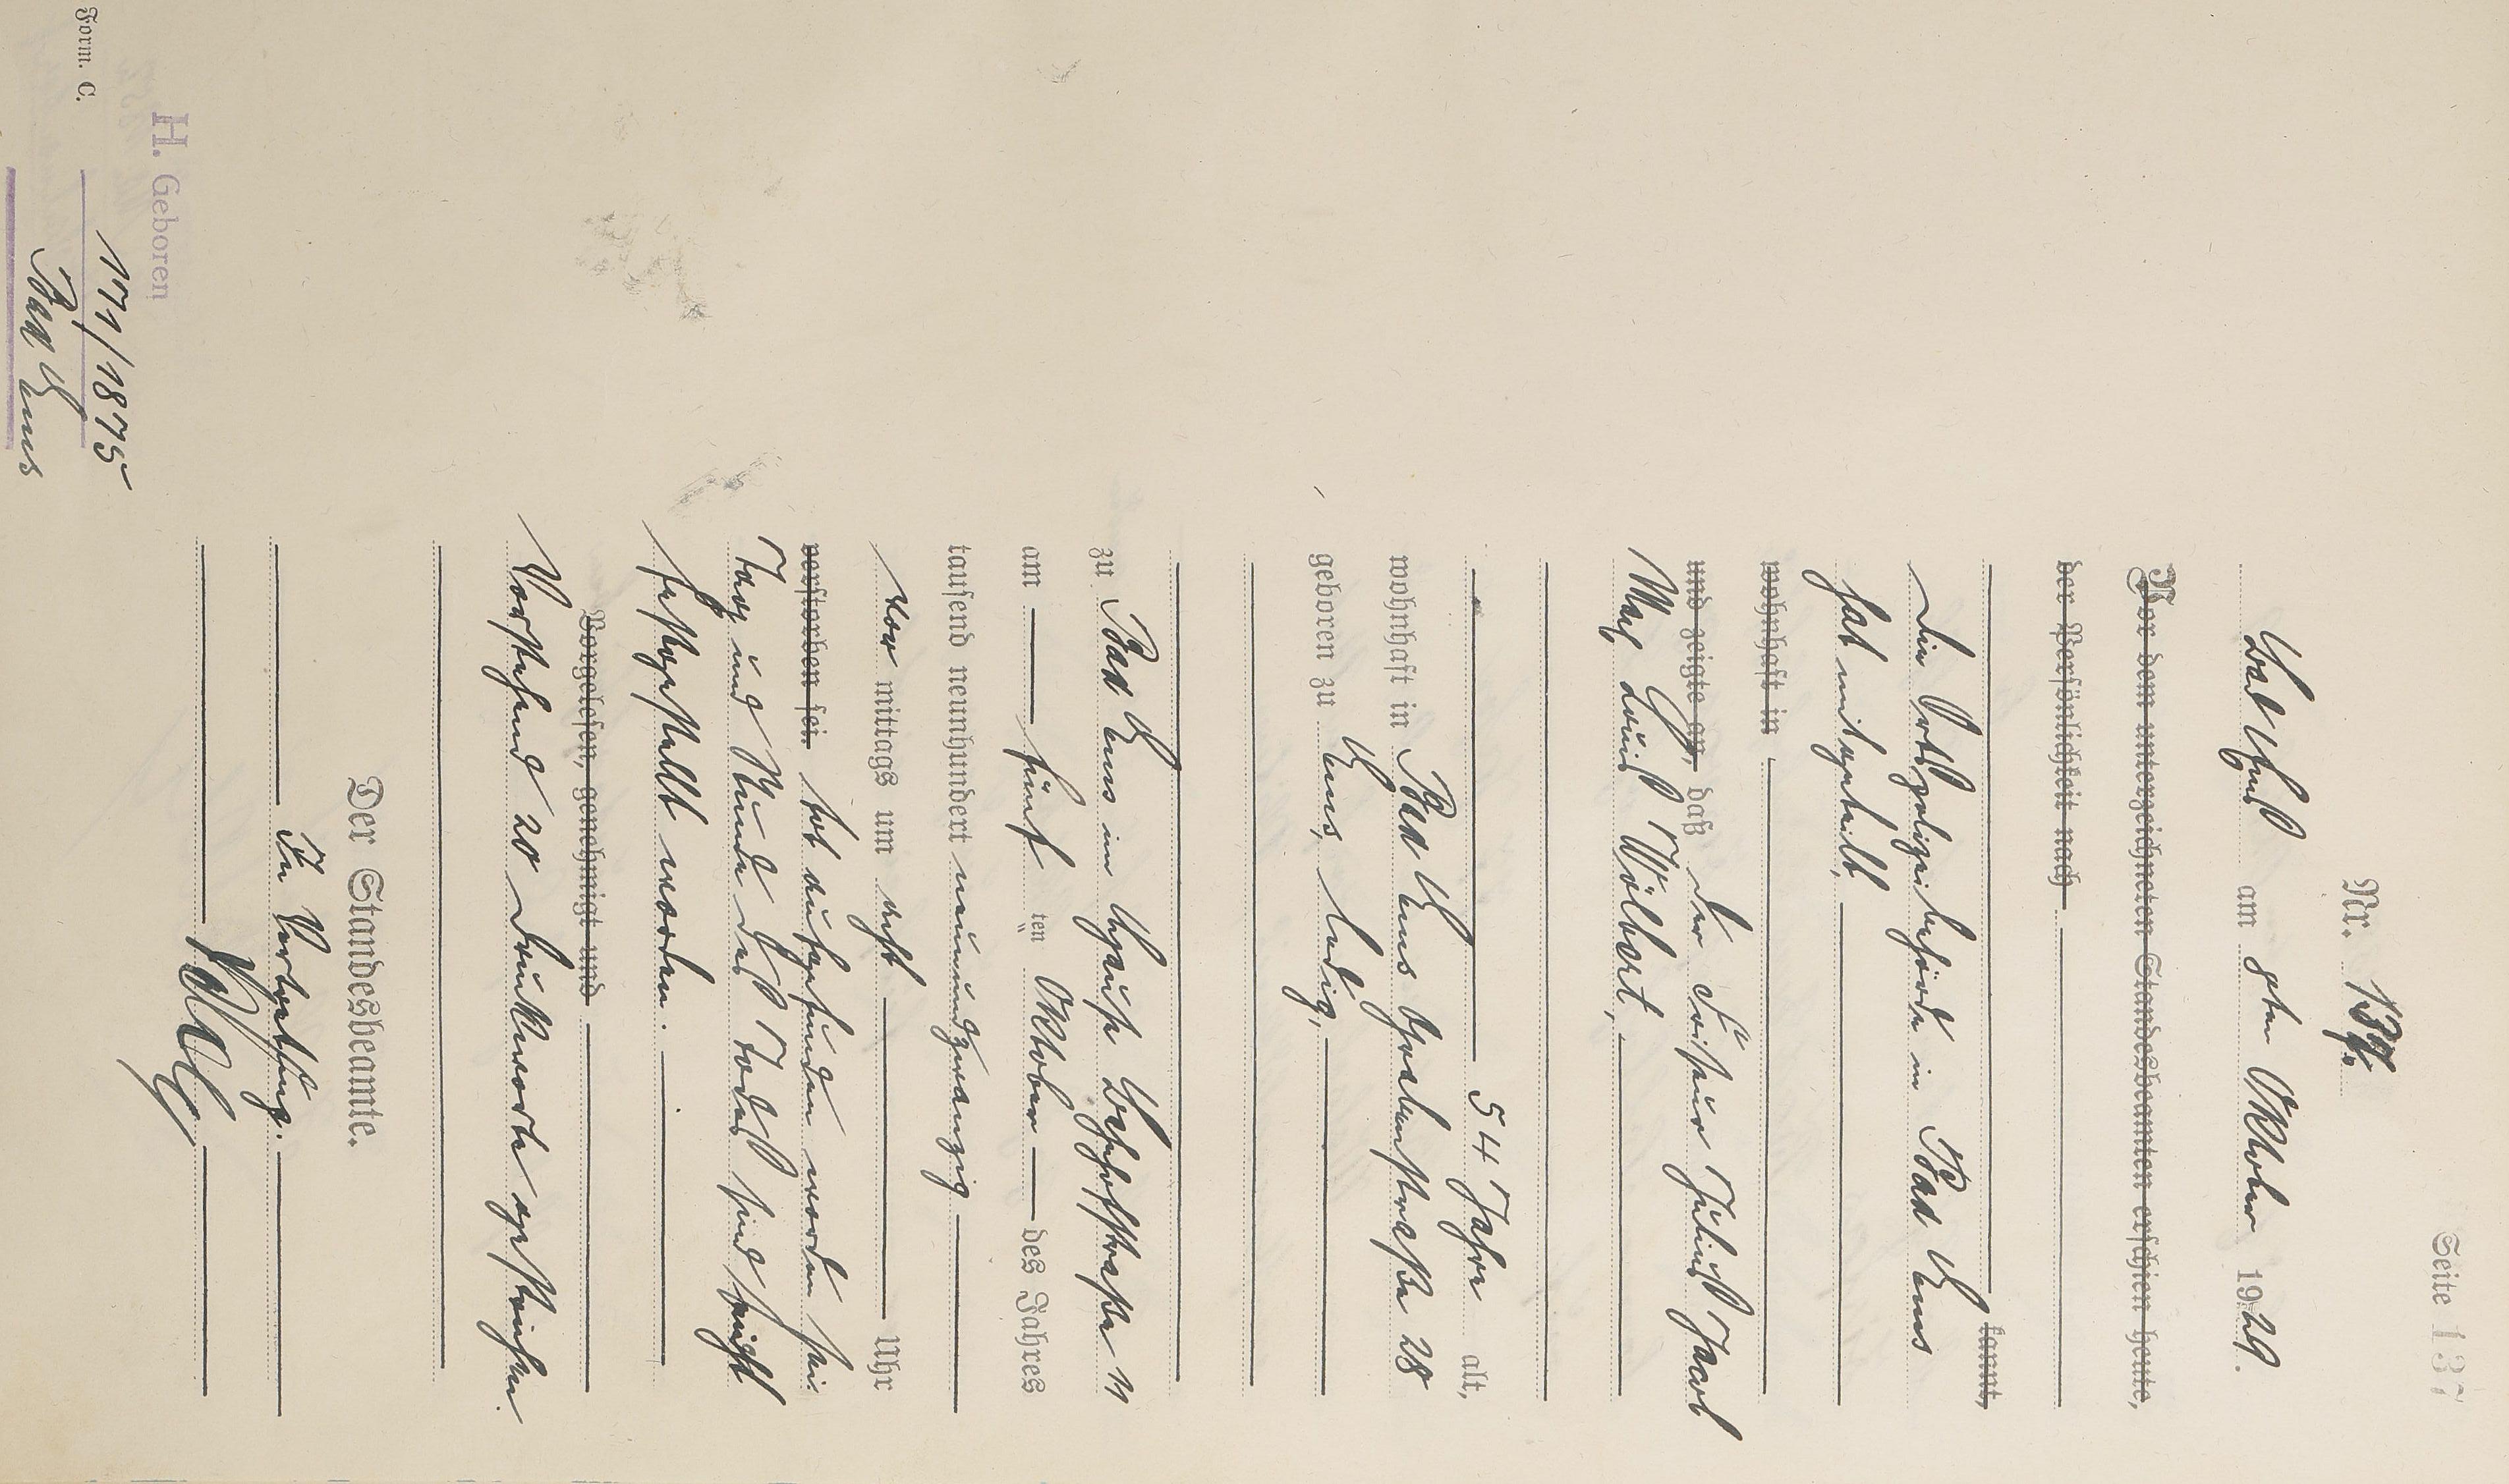 Seite 137
Nr. 137.
Bad Ems am 8ten Oktober 1929.
Vor dem unterzeichneten Standesbeamten erschien heute,
der Persönlichkeit nach
kannt,
Die Ortspolizeibehörde in Bad Ems
hat mitgeteilt,
wohnhaft in
und zeigte an, daß der Friseur Julius Karl
Max Louis Wölbert,
54 Jahre alt,
wohnhaft in Bad Ems Grabenstraße 28
geboren zu Ems, ledig,
zu Bad Ems im Hause Bahnhofstraße 11
am fünf ten Oktober des Jahres
tausend neunhundert neunundzwanzig
vor mittags um acht Uhr
verstorben sei. tot aufgefunden worden sei.
Tag und Stunde des Todes sind nicht
festgestellt worden.
Vorgelesen, genehmigt und
Vorstehend 20 Druckworte gestrichen.
Der Standesbeamte.
In Vertretung.
Form. C.
H. Geboren
171/1875
Bad Ems